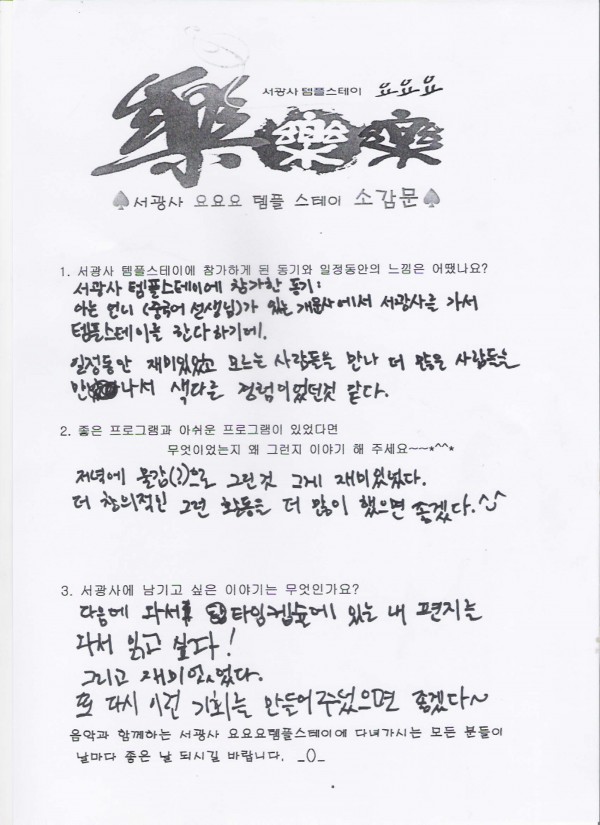 서광사 템플스테이 요요요
樂 樂 樂
♠서광사 요요요 템플 스테이 소감문♠
1. 서광사 템플스테이에 참가하게 된 동기와 일정동안의 느낌은 어땠나요?
서광사 템플스테이에 참가한 동기:
아는 언니 (중국어 선생님)가 있는 개문사에서 서광사를 가서
템플스테이를 간다하기에.
일정동안 재미있었고 모르는 사람들을 만나 더 많은 사람들을
만나서 색다른 경험이었던것 같다.
2. 좋은 프로그램과 아쉬운 프로그램이 있었다면
무엇이었는지 왜 그런지 이야기 해 주세요~~*^^*
저녁에 물감(?)으로 그린것 그게 재미있었다.
더 창의적인 그런 활동을 더 많이 했으면 좋겠다.^^
3. 서광사에 남기고 싶은 이야기는 무엇인가요?
다음에 와서 타임캡슐에 있는 내 편지를
다시 읽고 싶다!
그리고 재미있었다.
또 다시 이런 기회를 만들어주셨으면 좋겠다~
음악과 함께하는 서광사 요요요템플스테이에 다녀가시는 모든 분들이
날마다 좋은 날 되시길 바랍니다. _()_